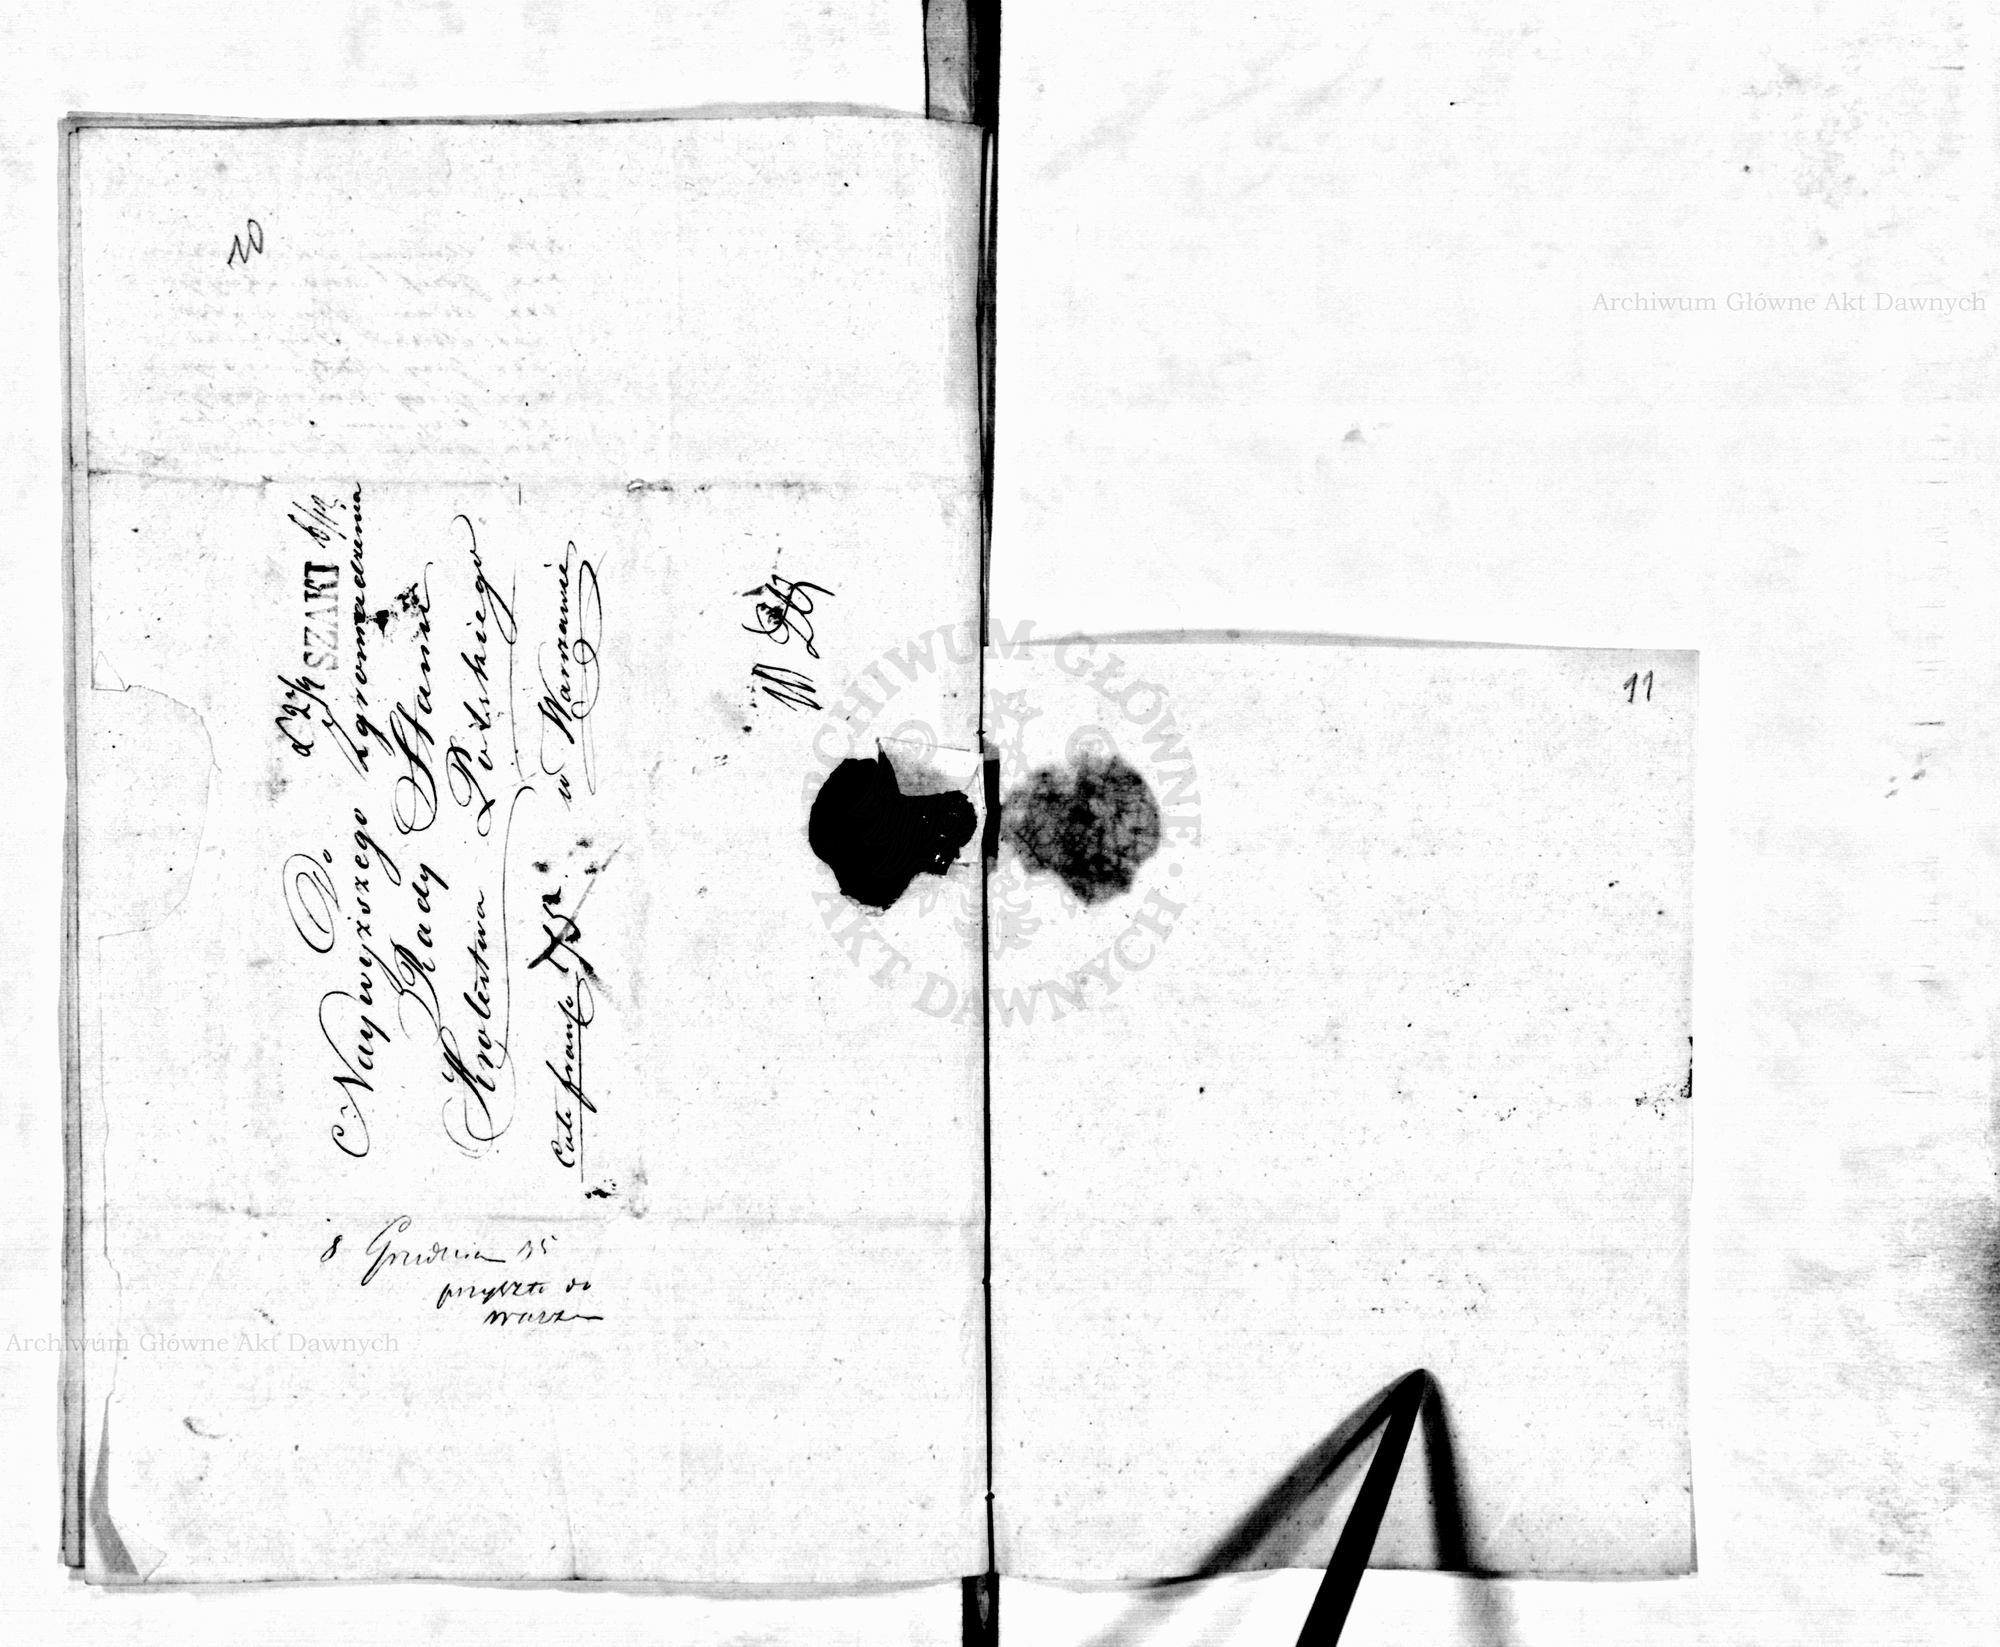 10
SZAKI 6/12
Do
Naywyższego Zgromadzenia
Rady Stanu
Krolestwa Polskiego
w Warszawie
Cale franco
8 Grudnia 35
przyszło do
Warsza
11
Archiwum Główne Akt Dawnych
Archiwum Główne Akt Dawnych
ARCHIWUM GŁÓWNE AKT DAWNYCH